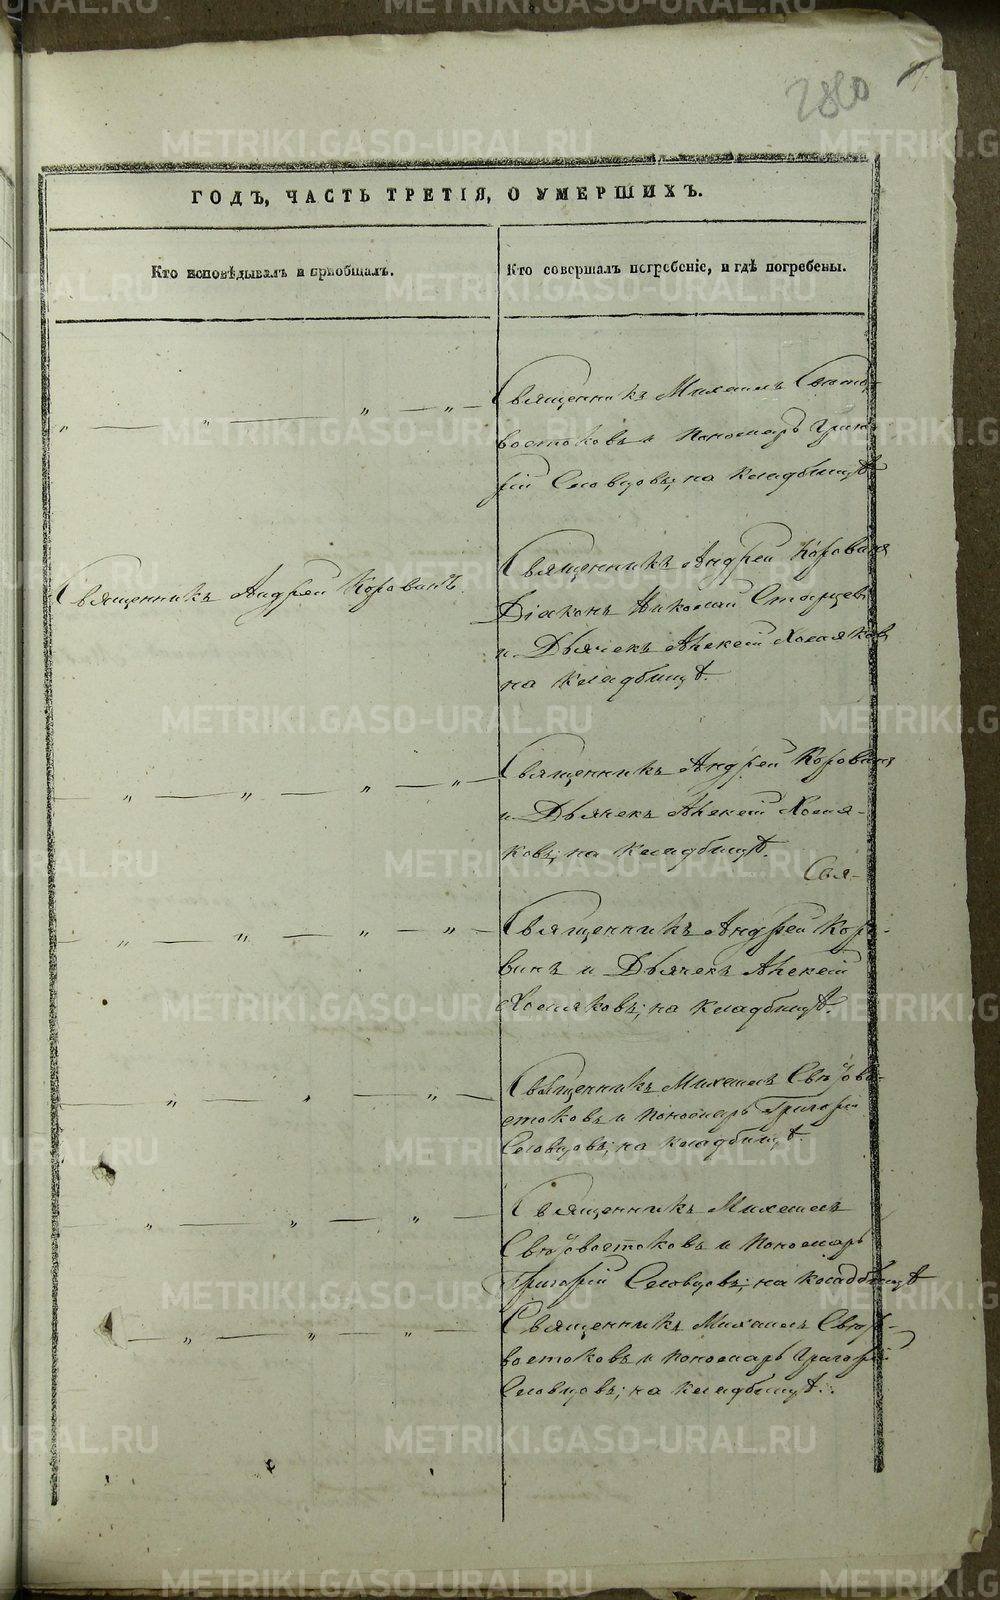 2880
ГОДЪ, ЧАСТЬ ТРЕТІЯ, О УМЕРШИХЪ.
Кто исповѣдывалъ и пріобщалъ.
Кто совершалъ погребеніе, и гдѣ погребены.
„ — „ — „ — „ —
Священникъ Михаилъ Свѣто-
востоковъ и Пономарь Григо-
рій Словцовъ; на кладбищѣ
Священникъ Андрей Коровинъ.
Священникъ Андрей Коровинъ
Діаконъ Николай Старцевъ
и Дьячекъ Алексій Хомяковъ
на кладбищѣ.
— „ — „ — „ — „ —
Священникъ Андрей Коровинъ
и Дьячекъ Алексій Хомя-
ковъ; на кладбищѣ.
Свя-
— „ — „ — „ — „ —
Священникъ Андрей Коро-
винъ и Дьячекъ Алексій
Хомяковъ; на кладбищѣ.
— „ — „ — „ —
Священникъ Михаилъ Свѣтово-
стоковъ и Пономарь Григорій
Словцовъ; на кладбищѣ.
„ — „ — „ —
Священникъ Михаилъ
Свѣтовостоковъ и Пономарь
Григорій Словцовъ; на кладбищѣ
— „ — „ — „ —
Священникъ Михаилъ Свѣто-
востоковъ и Пономарь Григорій
Словцовъ; на кладбищѣ.
METRIKI.GASO-URAL.RU